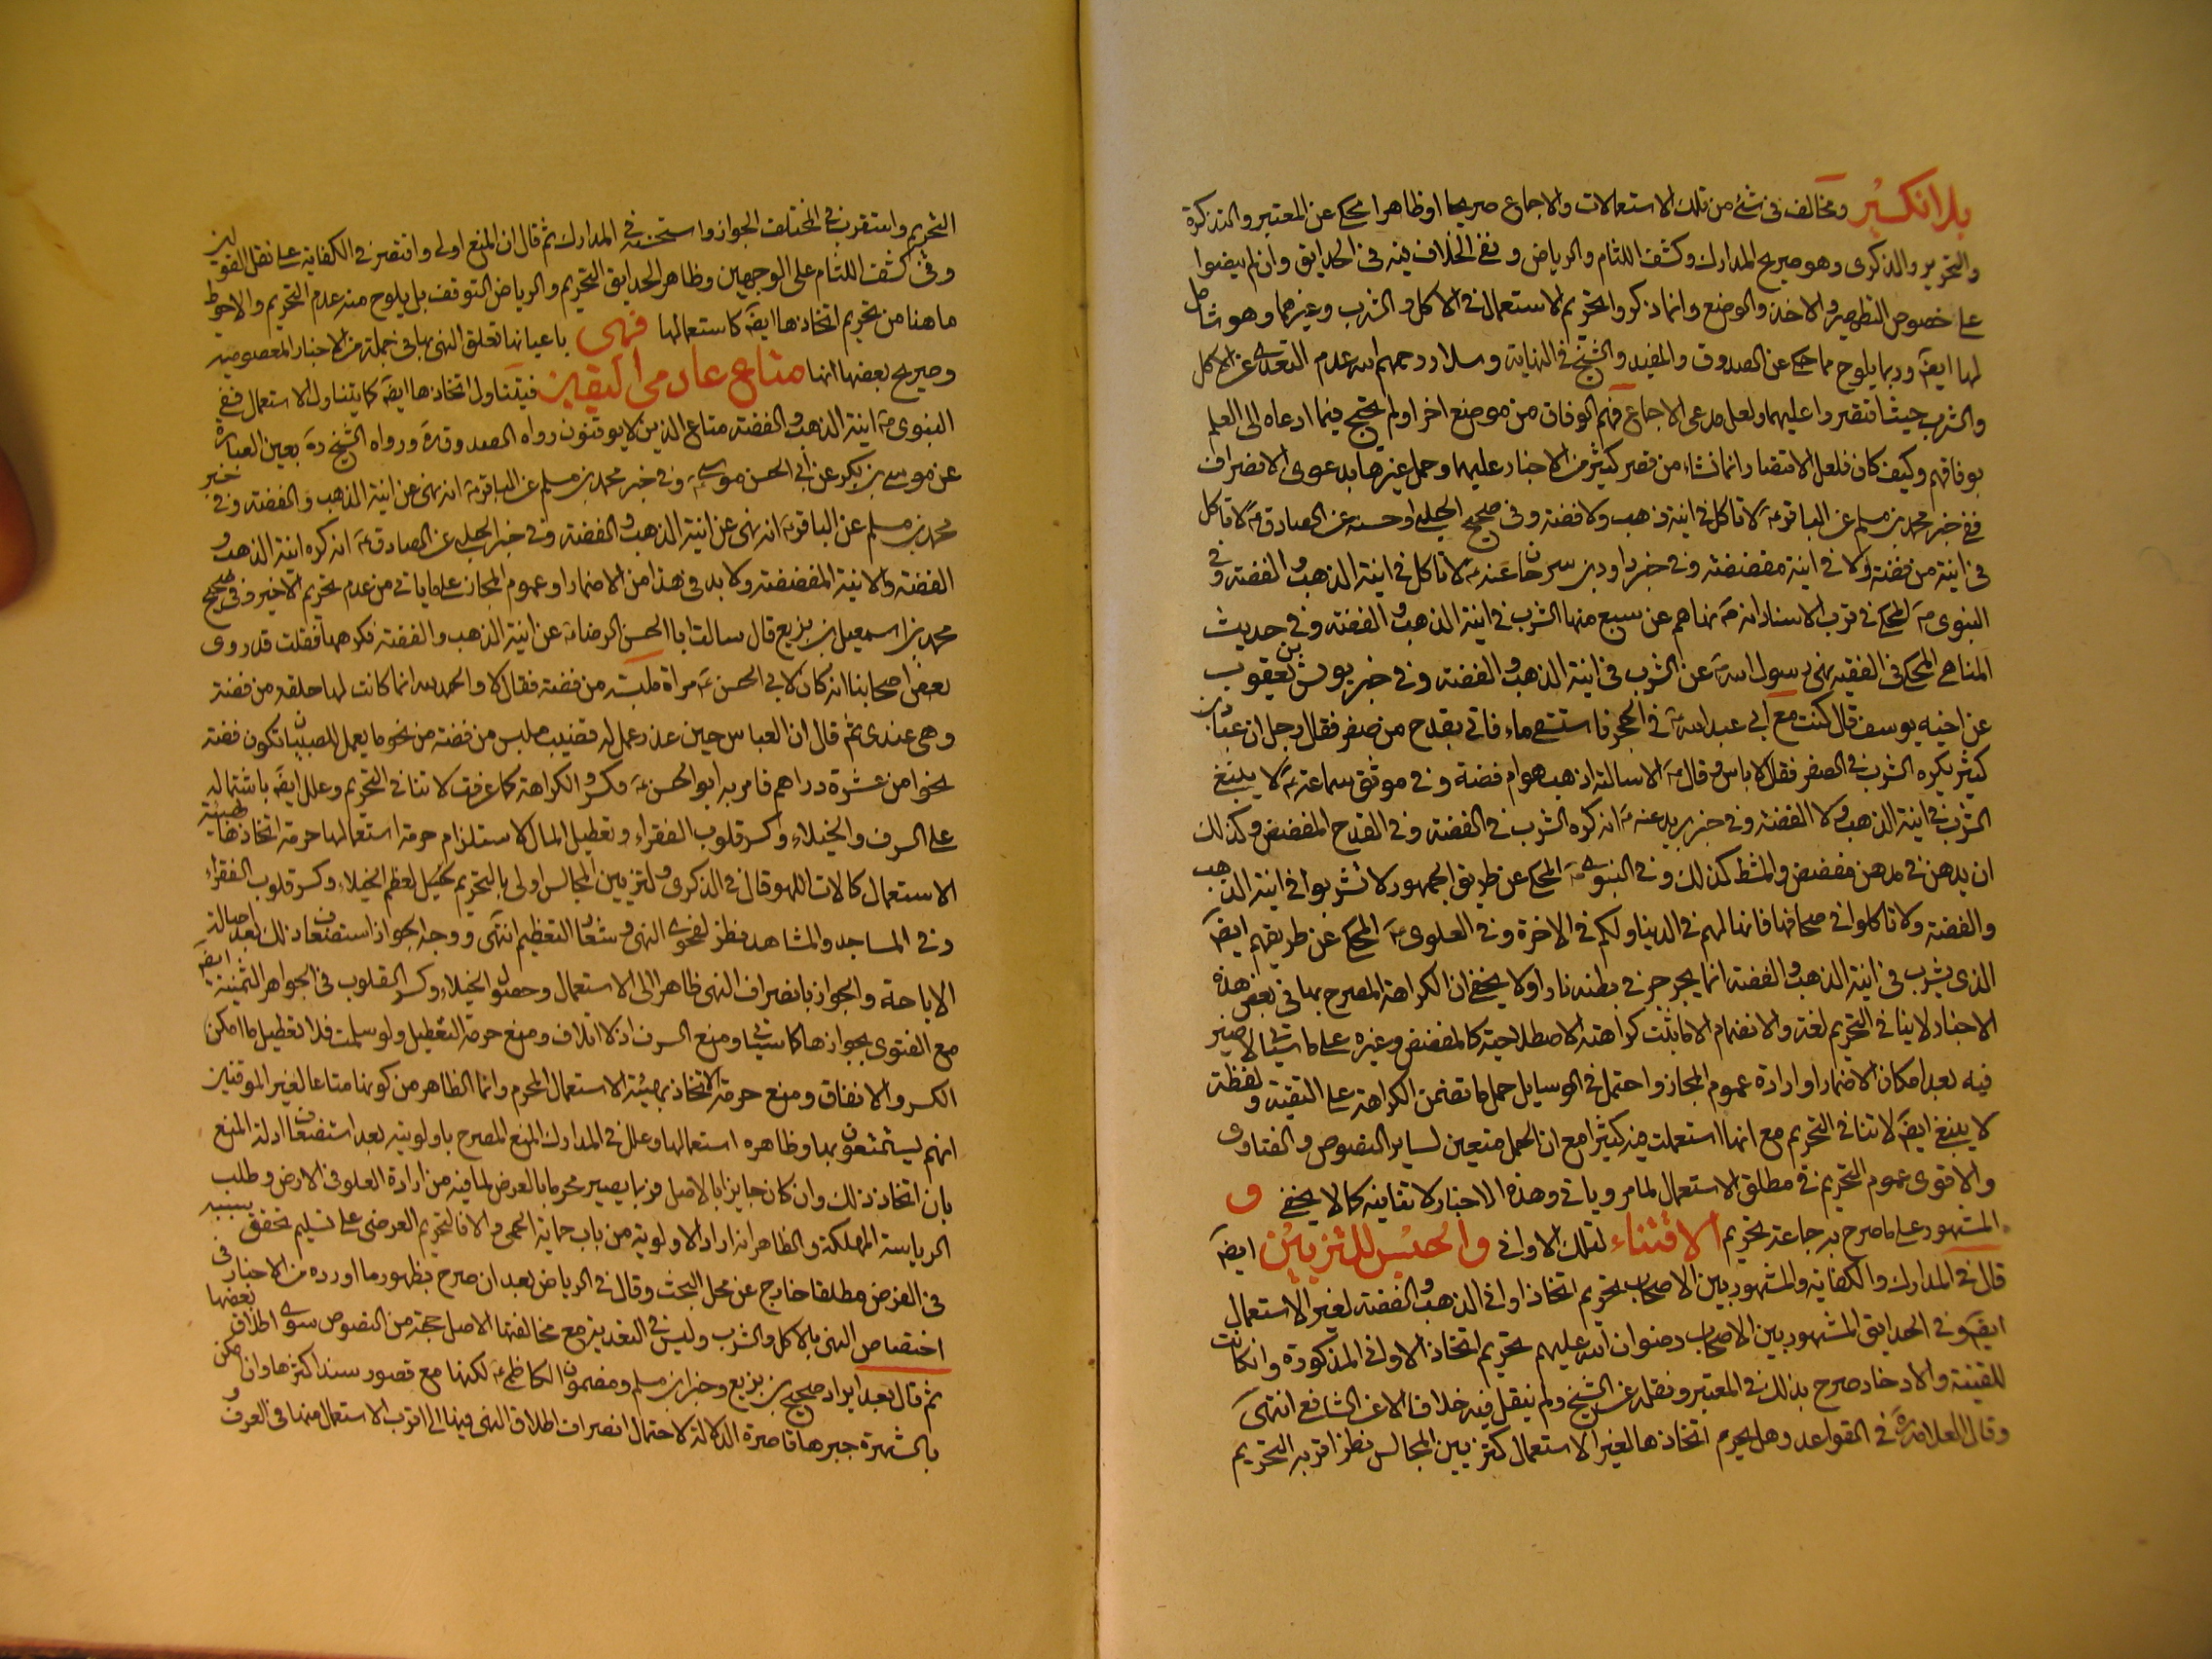 بلا نكير ومخالف في شئ من تلك الاستعمالات والاجماع صريحا او ظاهرا محكي عن المعتبر والتذكرة
والتحرير والذكرى وهو صريح المدارك وكشف اللثام والرياض ونفى الخلاف فيه في الحدايق وان لم ينصوا
على خصوص التطهير والاخذ والوضع وانما ذكروا تحريم الاستعمال في الاكل والشرب وغيرهما وهو شامل
لها ايضه وربما يلوح مما حكي عن الصدوق والمفيد والشيخ في النهاية وسلار رحمهم الله عدم التعدي عن الاكل
والشرب حيث اقتصروا عليهما ولعل مدعى الاجماع فهم الوفاق من موضع اخر او لم يحتج فيما ادعاه الى العلم
بوفاقهم وكيف كان فلعل الاقتصار انما نشاء من قصر كثير من الاخبار عليهما وحمل غيرها بدعوى الانصراف
ففي خبر محمد بن مسلم عن الباقر ع لا تاكل في انية ذهب ولا فضة وفي صحيح الحلبي او حسنه عن الصادق ع لا تاكل
في انية من فضة ولا في انية مفضضة وفي خبر داود بن سرحان عنه ع لا تاكل في انية الذهب والفضة وفي
النبوي ص المحكي في قرب الاسناد انه ص نهاهم عن سبع منها الشرب في انية الذهب والفضة وفي حديث
المناهي المحكي في الفقيه نهى رسول الله ص عن الشرب في انية الذهب والفضة وفي خبر يونس بن يعقوب
عن اخيه يوسف قال كنت مع ابي عبد الله ع في الحجر فاستسقى ماء فاتي بقدح من صفر فقال رجل ان عباد بن
كثير يكره الشرب في الصفر فقال لا باس وقال ع الا سالته اذهب هو ام فضة وفي موثق سماعة عنه ع لا ينبغي
الشرب في انية الذهب ولا الفضة وفي خبر بريد عنه ع انه كره الشرب في الفضة وفي القدح المفضض وكذلك
ان يدهن في مدهن مفضض والمشط كذلك وفي النبوي ص المحكي عن طريق الجمهور لا تشربوا في انية الذهب
والفضة ولا تاكلوا في صحافها فانها لهم في الدنيا ولكم في الاخرة وفي العلوي ع المحكي عن طريقهم ايضه
الذي يشرب في انية الذهب والفضة انما يجرجر في بطنه نارا ولا يخفى ان الكراهة المصرح بها في بعض هذه
الاخبار لا ينافي التحريم لغة والانضمام الا ما يثبت كراهته الاصطلاحية كالمفضض وغيره على ما سيأتي لا ضير
فيه بعد امكان الاضمار او ارادة عموم المجاز واحتمل في الوسايل حمل ما تضمن الكراهة على التقية ولفظة
لا ينبغي ايضه لا تنافي التحريم مع انها استعملت فيه كثيرا مع ان الحمل متعين لساير النصوص والفتاوى
والاقوى عموم التحريم في مطلق الاستعمال لما مر وياتي وهذه الاخبار لا تنافيه كما لا يخفى و
المشهور على ما صرح به جماعة تحريم الاقتناء لتلك الاواني والحبس للتزيين ايضه
قال في المدارك والكفاية والمشهور بين الاصحاب تحريم اتخاذ اواني الذهب والفضة لغير الاستعمال
ايضه وفي الحدايق المشهور بين الاصحاب رضوان الله عليهم تحريم اتخاذ الاواني المذكورة وان كانت
للقنية والادخار صرح بذلك في المعتبر ونقله عن الشيخ ولم ينقل فيه خلافا الا عن الشافعي انتهى
وقال العلامة ره في القواعد وهل يحرم اتخاذها لغير الاستعمال كتزيين المجالس نظر اقربه التحريم
التحريم واستقرب في المختلف الجواز واستحسنه في المدارك ثم قال ان المنع اولى واقتصر في الكفاية على نقل القولين
وفي كشف اللثام على الوجهين وظاهر الحدايق التحريم والرياض التوقف بل يلوح منه عدم التحريم والاحوط
ما هنا من تحريم اتخاذها ايضه كاستعمالها فهي باعيانها تعلق النهى بها في جملة من الاخبار المعصومية
وصريح بعضها انها متاع عادمي اليقين فيتناول اتخاذها ايضه كما يتناول الاستعمال ففي
النبوي ص انية الذهب والفضة متاع الذين لا يوقنون رواه الصدوق ره ورواه الشيخ ره بعين العبارة
عن موسى بن بكر عن ابي الحسن موسى ع وفي خبر محمد بن مسلم عن الباقر ع انه نهى عن انية الذهب والفضة وفي خبر
محمد بن مسلم عن الباقر ع انه نهى عن انية الذهب والفضة وفي خبر الحلبي عن الصادق ع انه كره انية الذهب و
الفضة والانية المفضضة ولا بد في هذا من الاضمار او عموم المجاز على ما ياتي من عدم تحريم الاخير وفي صحيح
محمد بن اسمعيل بن بزيع قال سالت ابا الحسن الرضا ع عن انية الذهب والفضة فكرههما فقلت قد روى
بعض اصحابنا انه كان لابي الحسن ع مراة ملبسة من فضة فقال لا والحمد لله انما كانت لها حلقة من فضة
وهي عندي ثم قال ان العباس حين عذر عمل له قضيب ملبس من فضة من نحو ما يعمل للصبيان تكون فضة
نحوا من عشرة دراهم فامر به ابو الحسن ع فكسر والكراهة كما عرفت لا تنافي التحريم وعلل ايضه باشتماله
على السرف والخيلاء وكسر قلوب الفقراء وتعطيل المال لاستلزام حرمة استعمالها حرمة اتخاذها لهيئة
الاستعمال كالات اللهو قال في الذكرى ولتزيين المجالس اولى بالتحريم لعظم الخيلاء وكسر قلوب الفقراء
وفي المساجد والمشاهد نظر لفحوى النهى وشعار التعظيم انتهى ووجه الجواز استضعاف ذلك بعد اصالة
الاباحة والجواز بانصراف النهى ظاهرا الى الاستعمال وحصول الخيلاء وكسر القلوب في الجواهر الثمينة ايضه
مع الفتوى بجوازها كما سيأتي ومنع السرف اذ لا اتلاف ومنع حرمة التعطيل ولو سلمت فلا تعطيل ما امكن
الكسر والانفاق ومنع حرمة الاتخاذ بهيئة الاستعمال المحرم وانما الظاهر من كونها متاعا لغير الموقنين
انهم يستمتعون بها وظاهره استعمالها وعلل في المدارك المنع المصرح باولويته بعد استضعاف ادلة المنع
بان اتخاذ ذلك وان كان جايزا بالاصل فربما يصير محرما بالعرض لما فيه من ارادة العلو في الارض وطلب
الرياسة المهلكة والظاهر انه اراد الاولوية من باب حماية الحمى والا فالتحريم العرضي على تسليم تحقق سببه
في الفرض مطلقا خارج عن محل البحث وقال في الرياض بعد ان صرح بظهور ما اورده من الاخبار في
اختصاص النهى بالاكل والشرب وليس في التعدية مع مخالفتها الاصل حجة من النصوص سوى اطلاق بعضها
ثم قال بعد ايراد صحيح بن بزيع وخبر ابن مسلم ومضمون الكاظمي ع لكنها مع قصور سند اكثرها وان امكن
بالشهرة جبرها قاصرة الدلالة لاحتمال انصراف اطلاق النهى فيها الى اقرب الاستعمال منها في العرف و